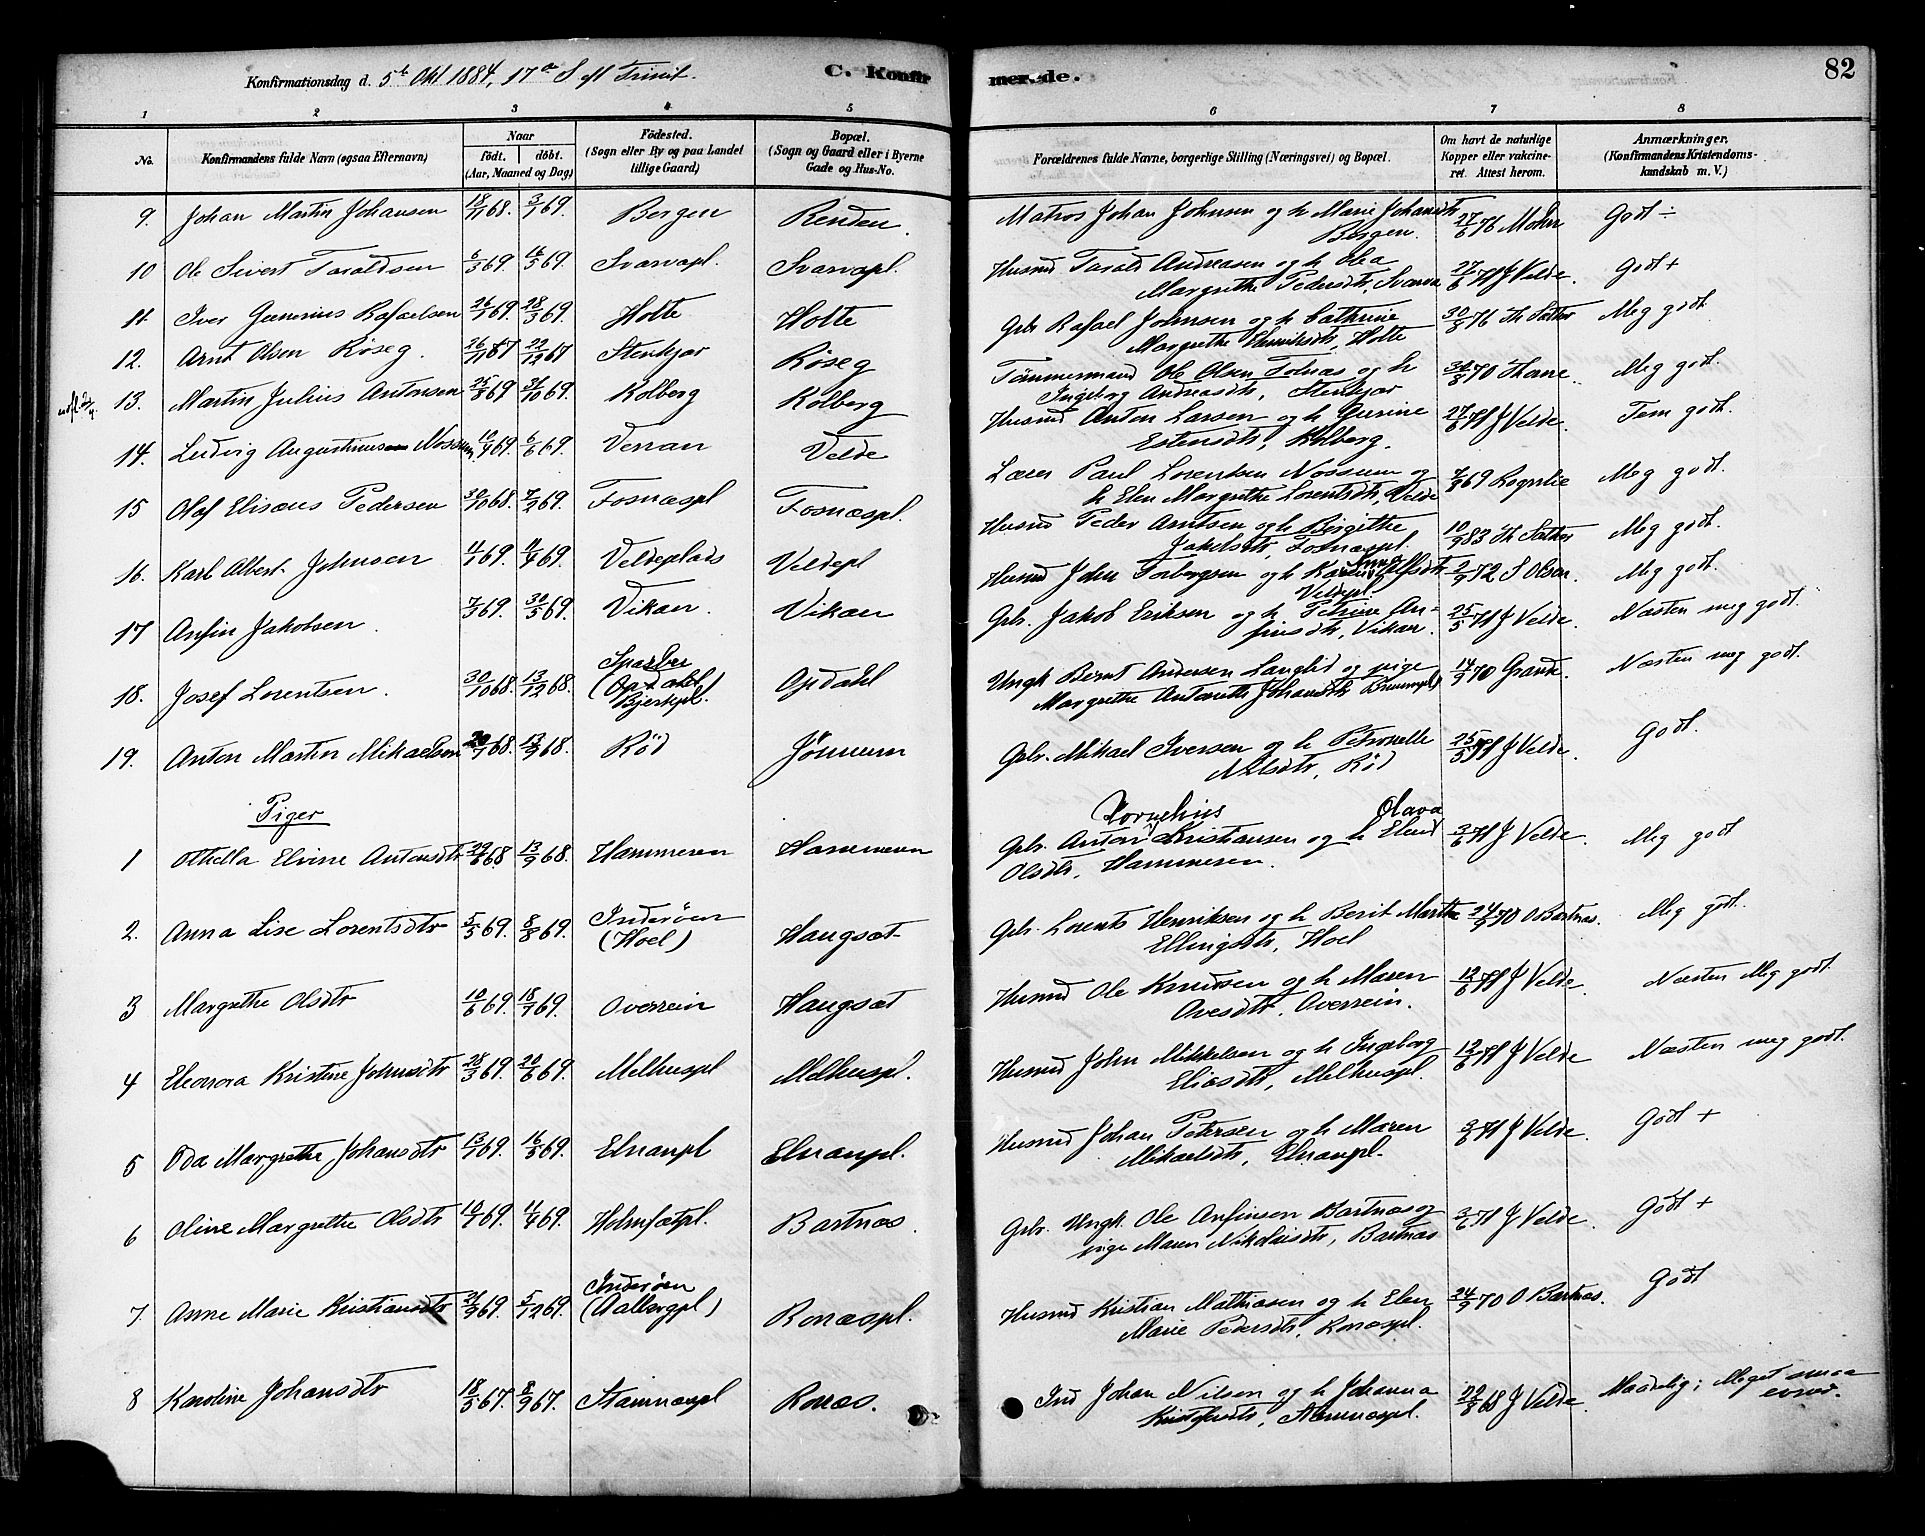 Konfirmationsdag d. 5te Okt 1884, 17de S. ef Trinit.
C. Konfirmerede.
82
1 2 3 4 5 6 7 8
No.
Konfirmandens fulde Navn (ogsaa Efternavn)
Naar
födt. döbt.
(Aar, Maaned og Dag)
Födested.
(Sogn eller By og paa Landet
tillige Gaard)
Bopæl.
(Sogn og Gaard eller i Byerne
Gade og Hus-No.
Forældrenes fulde Navne, borgerlige Stilling (Næringsvei) og Bopæl.
Om havt de naturlige
Kopper eller vakcine-
ret. Attest herom.
Anmærkninger.
(Konfirmandens Kristendoms-
kundskab m. V.)
9. Johan Martin Johansen 18/ 68. 3/1 69. Bergen Renden. Matros Johan Johnsen og h Marie Johansdtr 27/6 76 Mohn Godt ÷
Bergen.
10 Ole Sivert Taraldsen 6/3 69. 16/5 69. Svarvapl. Svarvapl. Husmd Tarald Andreasen og h Olea 27/6 71 J Velde. Godt +
Margrethe Pedersdtr, Svarva
11. Iver Gunerius Rafaelsen 26/1 69. 28/3 69. Holte Holte Gbr Rafael Johnsen og h Cathrine 30/8 76 Th Sæther Meg godt
Margrethe Henriksdtr, Holte
12. Arnt Olsen Röseg. 26/11 67 22/12 67 Stenkjær Röseg Tömmermand Ole Olsen Folnas og h 70 Hanne. Meg godt.
Ingeborg Andreasdtr, Stenkjær
13. Martin Julius Antonsen 25/8 69 31/10 69. Kolberg Kolberg Husmd Anton Larsen og h Gurine 27/6 71 J Velde. Tem godt.
Estensdtr, Kolberg.
14. Ludvig Augustinusen Nossum 10/4 69. 6/6 69. Verran Velde Lærer Paul Lorentsen Nossum og 7/8 69 Meg godt.
h Elen Margrethe Lorentsdtr, Velde
15 Olaf Elisæus Pedersen 30/10 68. 7/2 69. Fosnæspl Fosnæspl. Husmd Peder Arntsen og h Birgithe 10/9 83 Th Sæther Meg godt.
Jakobsdtr, Fosnæspl.
16. Karl Albert Johnsen 11/1 69. 11/4 69. Veldeplads Veldepl Husmd John Torbergsen og h Karen Anna 2/9 72 S Olsen. Meg godt.
Veldepl
17 Anfin Jakobsen. 7/3 69. 30/5 69. Vikan. Vikan Gbr. Jakob Eriksen og h Petrine An- 25/5 71 J Velde. Næsten meg godt.
finsdtr, Vikan.
18. Josef Lorentsen. 30/10 68. 13/12 68. Sparbu Opdahl Ungk Bernt Andersen Langlid og pige 14/9 70 Grande. Næsten meg godt.
(Opdahl
Bjerkpl. Margrethe Antonette Johansdtr
19. Anton Martin Mikaelsen 68. 13/9 68. Röd Jönnum Gbr. Mikael Iversen og h Petronelle 25/5 71 J Velde. Godt.
Nilsdtr, Röd
Piger
Kornelius Olava
1 Othelia Elvine Antonsdtr 68. 13/9 68. Hammeren Hammeren Gbr. Anton Kristiansen og h Elen 3/6 71 J Velde. Meg godt
Olsdtr, Hammeren.
2. Anna Lise Lorentsdtr 5/5 69. 8/8 69. Inderöen Haugsæt Gbr. Lorents Henriksen og h Berit Martha 24/9 70 O Bartnæs. Meg godt.
(Hoel) Ellingsdtr, Hoel
3 Margrethe Olsdtr 10/6 69. 18/7 69. Overrein Haugsæt Husmd Ole Knudsen og h Maren 12/6 71 J Velde. Næsten Meg godt.
Ovesdtr. Overrein.
4 Eleonora Kristine Johnsdtr 28/3 69. 20/6 69. Melhuspl Melhuspl. Husmd John Mikkelsen og h Ingeborg 12/6 71 J Velde Næsten meg godt.
Eliasdtr, Melhuspl.
5 Oda Margrethe Johansdtr 13/1 69. 16/5 69. Elnanpl Elnanpl. Husmd Johan Petersen og h Maren 3/6 71 J Velde. Godt +
Mikaelsdtr, Elnanpl.
6 Oline Margrethe Olsdtr 10/1 69. 11/4 69. Holmsætpl. Bartnæs. Gbr. Ungk. Ole Anfinsen Bartnæs og 3/6 71 J Velde. Godt +
pige Maren Nikolaisdtr, Bartnæs
7. Anne Marie Kristiansdtr 21/9 69. 5/12 69. Inderöen Ronæspl. Husmd Kristian Mathiasen og h Elen 24/9 70 O Bartnæs. Godt
(Aalbergpl) Marie Pedersdtr, Ronæspl.
8 Karoline Johansdtr 18/5 67. 8/9 67. Stamnæspl Ronæs. Ind Johan Nilsen og h Johanna 68 J Velde. Maadelig; Meget smaa
Kristofersdtr, Stamnæspl. evner.